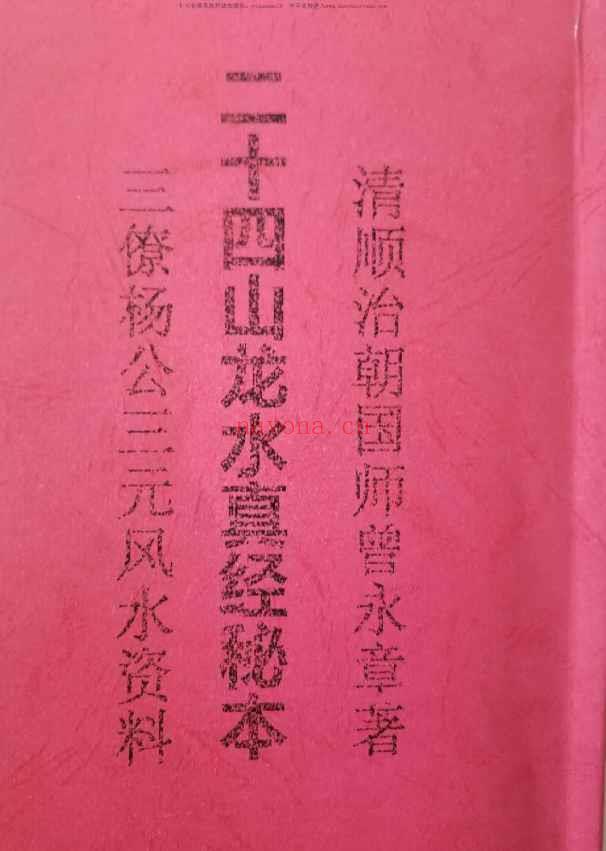 清顺治朝国师曾永章著
二十四山龙水真经秘本
三僚杨公三元风水资料
nayona.cn